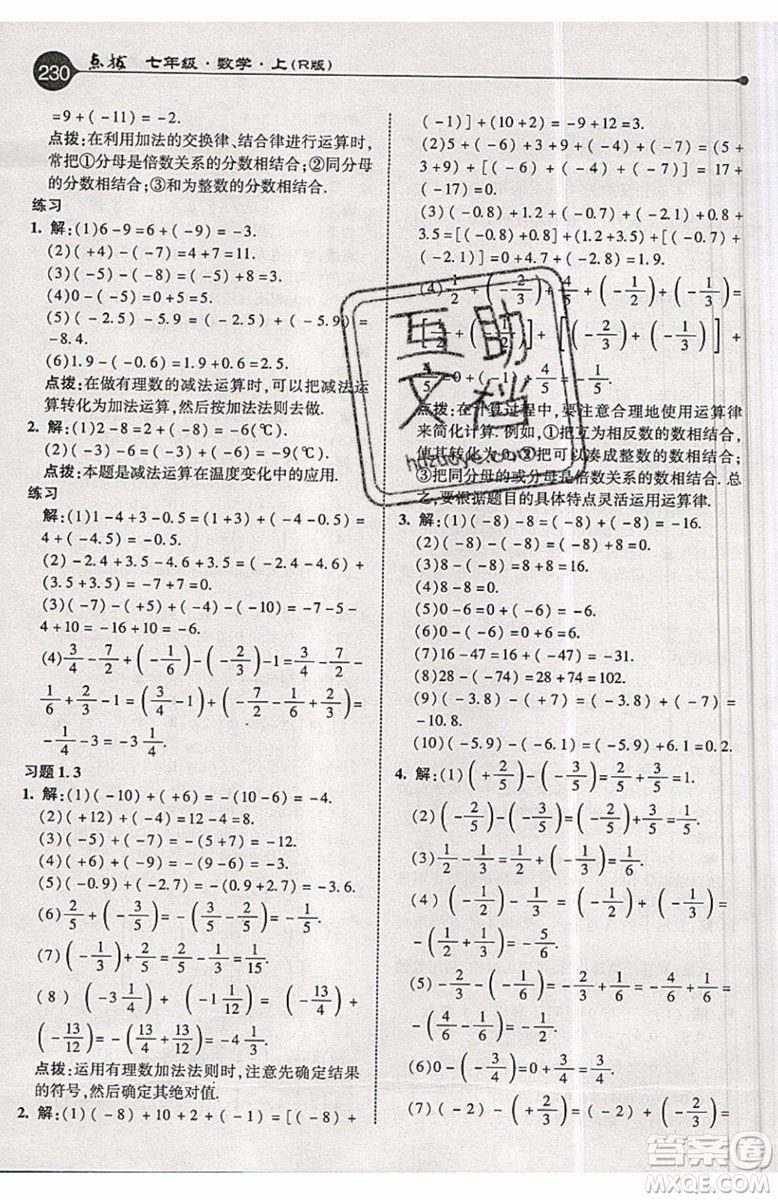 230 点拨 七年级·数学·上(R版)
=9+(-11)=-2.
点拨:在利用加法的交换律、结合律进行运算时,
常把①分母是倍数关系的分数相结合;②同分母
的分数相结合;③和为整数的分数相结合.
练习
1. 解:(1)6-9=6+(-9)=-3.
(2)(+4)-(-7)=4+7=11.
(3)(-5)-(-8)=(-5)+(+8)=3.
(4)0-(-5)=0+5=5.
(5)(-2.5)-5.9=(-2.5)+(-5.9)=
-8.4.
(6)1.9-(-0.6)=1.9+0.6=2.5.
点拨:在做有理数的减法运算时,可以把减法运
算转化为加法运算,然后按加法法则去做.
2. 解:(1)2-8=2+(-8)=-6(℃).
(2)(-3)-6=(-3)+(-6)=-9(℃).
点拨:本题是减法运算在温度变化中的应用.
练习
解:(1)1-4+3-0.5=(1+3)+(-4-0.5)=
4+(-4.5)=-0.5.
(2)-2.4+3.5-4.6+3.5=(-2.4-4.6)+
(3.5+3.5)=-7+7=0.
(3)(-7)-(+5)+(-4)-(-10)=-7-5-
4+10=-16+10=-6.
(4)3/4-7/2+(-1/6)-(-2/3)-1=3/4-7/2-
1/6+2/3-1=(3/4-1)+(-7/2-1/6+2/3)=
-1/4-3=-3 1/4.
习题1.3
1. 解:(1)(-10)+(+6)=-(10-6)=-4.
(2)(+12)+(-4)=12-4=8.
(3)(-5)+(-7)=-(5+7)=-12.
(4)(+6)+(-9)=-(9-6)=-3.
(5)(-0.9)+(-2.7)=-(0.9+2.7)=-3.6.
(6)2/5+(-3/5)=-(3/5-2/5)=-1/5.
(7)(-1/3)+2/5=2/5-1/3=1/15.
(8)(-3 1/4)+(-1 1/12)=(-13/4)+
(-13/12)=-(13/4+13/12)=-13/3.
点拨:运用有理数加法法则时,注意先确定结果
的符号,然后确定其绝对值.
2. 解:(1)(-8)+10+2+(-1)=[(-8)+
(-1)]+(10+2)=-9+12=3.
(2)5+(-6)+3+9+(-4)+(-7)=(5+
3+9)+[(-6)+(-4)+(-7)]=17+
(-17)=0.
(3)(-0.8)+1.2+(-0.7)+(-2.1)+0.8+
3.5=[(-0.8)+0.8]+(1.2+3.5)+[(-0.7)+
(-2.1)]=0+4.7+(-2.8)=1.9.
(4)1/2+(-2/3)+4/5+(-1/2)+(-1/3)=
+[(-2/3)+(-1/3)]+
4/5=0+(-1)+4/5=-1/5.
点拨:在计算过程中,要注意合理地使用运算律
来简化计算.例如,①把互为相反数的数相结合,
使其转化为0,②把可以凑成整数的数相结合;
③把同分母的或分母是倍数关系的数相结合.总
之,要根据题目的具体特点灵活运用运算律.
3. 解:(1)(-8)-8=(-8)+(-8)=-16.
(2)(-8)-(-8)=(-8)+8=0.
(3)8-(-8)=8+8=16.
(4)8-8=0.
(5)0-6=0+(-6)=-6.
(6)0-(-6)=0+6=6.
(7)16-47=16+(-47)=-31.
(8)28-(-74)=28+74=102.
(9)(-3.8)-(+7)=(-3.8)+(-7)=
-10.8.
(10)(-5.9)-(-6.1)=(-5.9)+6.1=0.2.
4. 解:(1)(+2/5)-(-3/5)=2/5+3/5=1.
(2)(-2/5)-(-3/5)=(-2/5)+3/5=1/5.
(3)1/2-1/3=3/6-2/6=1/6.
(4)(-1/2)-1/3=(-1/2)+(-1/3)=
-(1/2+1/3)=-5/6.
(5)-2/3-(-1/6)=-2/3+1/6=-4/6+1/6=
-3/6=-1/2.
(6)0-(-3/4)=0+3/4=3/4.
(7)(-2)-(+2/3)=(-2)+(-2/3)=
互助
文档
答案圈
MXQE.COM